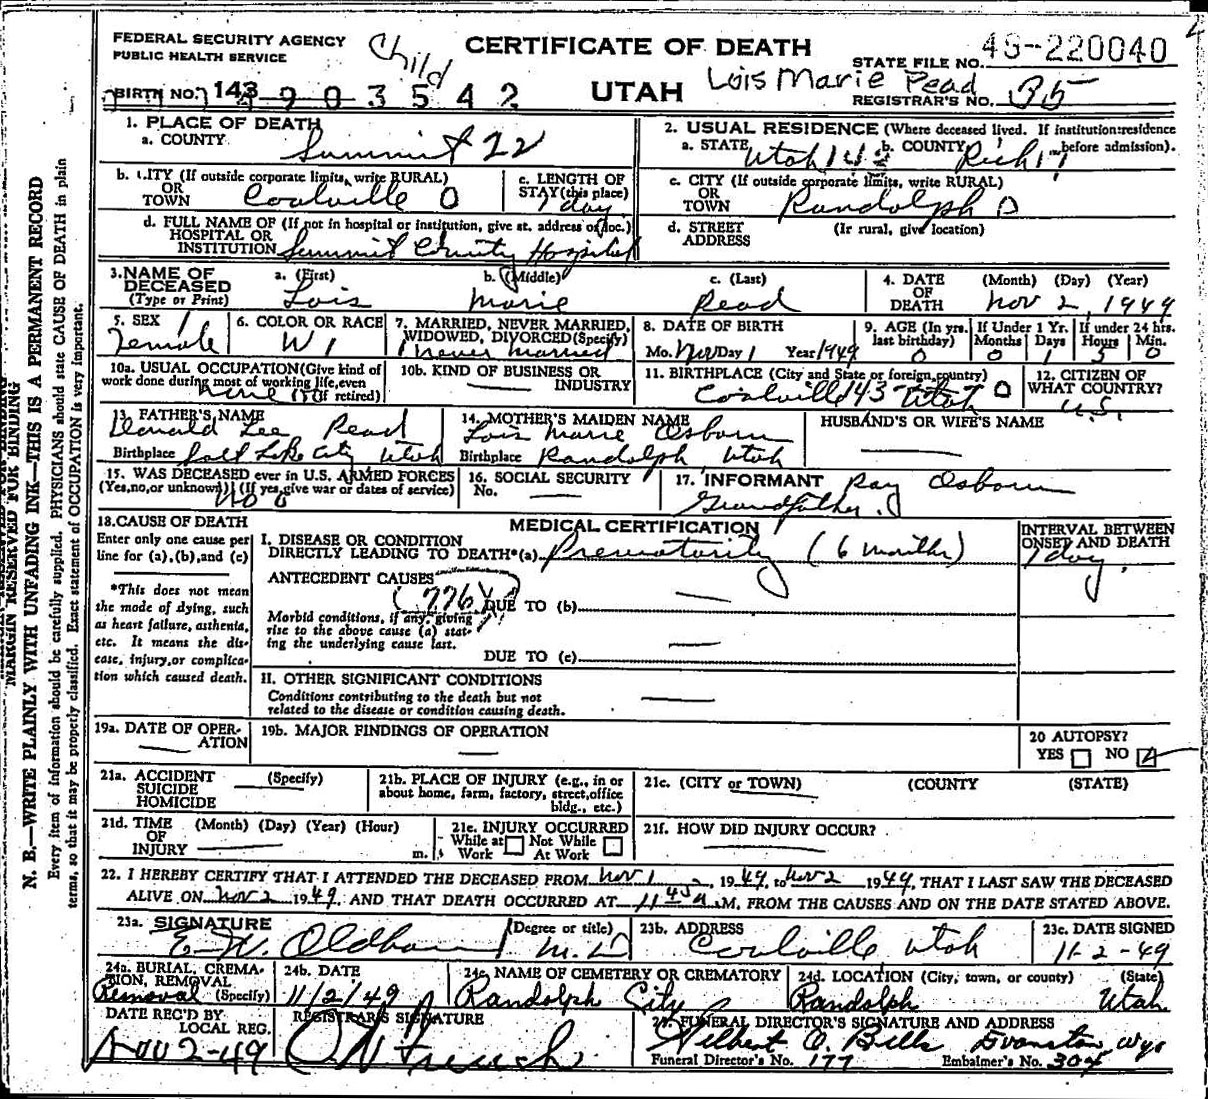 FEDERAL SECURITY AGENCY
PUBLIC HEALTH SERVICE
Child
CERTIFICATE OF DEATH
UTAH
Lois Marie Pead
STATE FILE NO. 49-220040
REGISTRAR'S NO. 35
BIRTH NO. 143 49 03542
1. PLACE OF DEATH
a. COUNTY Summit 22
2. USUAL RESIDENCE (Where deceased lived. If institution: residence before admission).
a. STATE Utah 142 b. COUNTY Rich 17
b. CITY (If outside corporate limits, write RURAL) OR TOWN Coalville 0
c. LENGTH OF STAY (this place) 1 day
c. CITY (If outside corporate limits, write RURAL) OR TOWN Randolph 0
d. FULL NAME OF (If not in hospital or institution, give st. address or loc.) HOSPITAL OR INSTITUTION Summit County Hospital
d. STREET ADDRESS (If rural, give location)
3. NAME OF DECEASED (Type or Print)
a. (First) Lois b. (Middle) Marie c. (Last) Pead
4. DATE OF DEATH (Month) (Day) (Year) Nov 2, 1949
5. SEX Female 1
6. COLOR OR RACE W 1
7. MARRIED, NEVER MARRIED, WIDOWED, DIVORCED (Specify) 1 never married
8. DATE OF BIRTH Mo. Nov Day 1 Year 1949
9. AGE (In yrs. last birthday) 0
If Under 1 Yr. Months 0 Days 1
If under 24 hrs. Hours 5 Min. 0
10a. USUAL OCCUPATION (Give kind of work done during most of working life, even if retired) none
10b. KIND OF BUSINESS OR INDUSTRY —
11. BIRTHPLACE (City and State or foreign country) Coalville 143 Utah 0
12. CITIZEN OF WHAT COUNTRY? U.S.
13. FATHER'S NAME Donald Lee Pead
Birthplace Salt Lake City Utah
14. MOTHER'S MAIDEN NAME Lois Marie Osborn
Birthplace Randolph, Utah
HUSBAND'S OR WIFE'S NAME —
15. WAS DECEASED ever in U.S. ARMED FORCES (Yes, no, or unknown) (If yes, give war or dates of service) No 0
16. SOCIAL SECURITY No. —
17. INFORMANT Ray Osborn
Grandfather
18. CAUSE OF DEATH
Enter only one cause per line for (a), (b), and (c)
*This does not mean the mode of dying, such as heart failure, asthenia, etc. It means the disease, injury, or complication which caused death.
MEDICAL CERTIFICATION
I. DISEASE OR CONDITION DIRECTLY LEADING TO DEATH* (a) Prematurity (6 months)
INTERVAL BETWEEN ONSET AND DEATH
1 day.
ANTECEDENT CAUSES
(776) DUE TO (b) —
Morbid conditions, if any, giving rise to the above cause (a) stating the underlying cause last.
DUE TO (c) —
II. OTHER SIGNIFICANT CONDITIONS
Conditions contributing to the death but not related to the disease or condition causing death. —
19a. DATE OF OPERATION —
19b. MAJOR FINDINGS OF OPERATION —
20 AUTOPSY?
YES NO
21a. ACCIDENT SUICIDE HOMICIDE (Specify) —
21b. PLACE OF INJURY (e.g., in or about home, farm, factory, street, office bldg., etc.)
21c. (CITY or TOWN) (COUNTY) (STATE)
21d. TIME OF INJURY (Month) (Day) (Year) (Hour) m. —
21e. INJURY OCCURRED While at Work Not While At Work
21f. HOW DID INJURY OCCUR? —
22. I HEREBY CERTIFY THAT I ATTENDED THE DECEASED FROM Nov 1, 1949, to Nov 2 1949, THAT I LAST SAW THE DECEASED
ALIVE ON Nov 2 1949, AND THAT DEATH OCCURRED AT M, FROM THE CAUSES AND ON THE DATE STATED ABOVE.
23a. SIGNATURE (Degree or title) E. W. Oldham M.D.
23b. ADDRESS Coalville Utah
23c. DATE SIGNED 11-2-49
24a. BURIAL, CREMATION, REMOVAL (Specify) Removal
24b. DATE 11/2/49
24c. NAME OF CEMETERY OR CREMATORY Randolph City
24d. LOCATION (City, town, or county) (State) Randolph Utah
DATE REC'D BY LOCAL REG. Nov 2-49
REGISTRAR'S SIGNATURE
25. FUNERAL DIRECTOR'S SIGNATURE AND ADDRESS
Wilbert O. Bills Evanston, Wyo
Funeral Director's No. 177 Embalmer's No. 304
MARGIN RESERVED FOR BINDING
N. B.—WRITE PLAINLY WITH UNFADING INK—THIS IS A PERMANENT RECORD
Every item of information should be carefully supplied. PHYSICIANS should state CAUSE OF DEATH in plain
terms, so that it may be properly classified. Exact statement of OCCUPATION is very important.